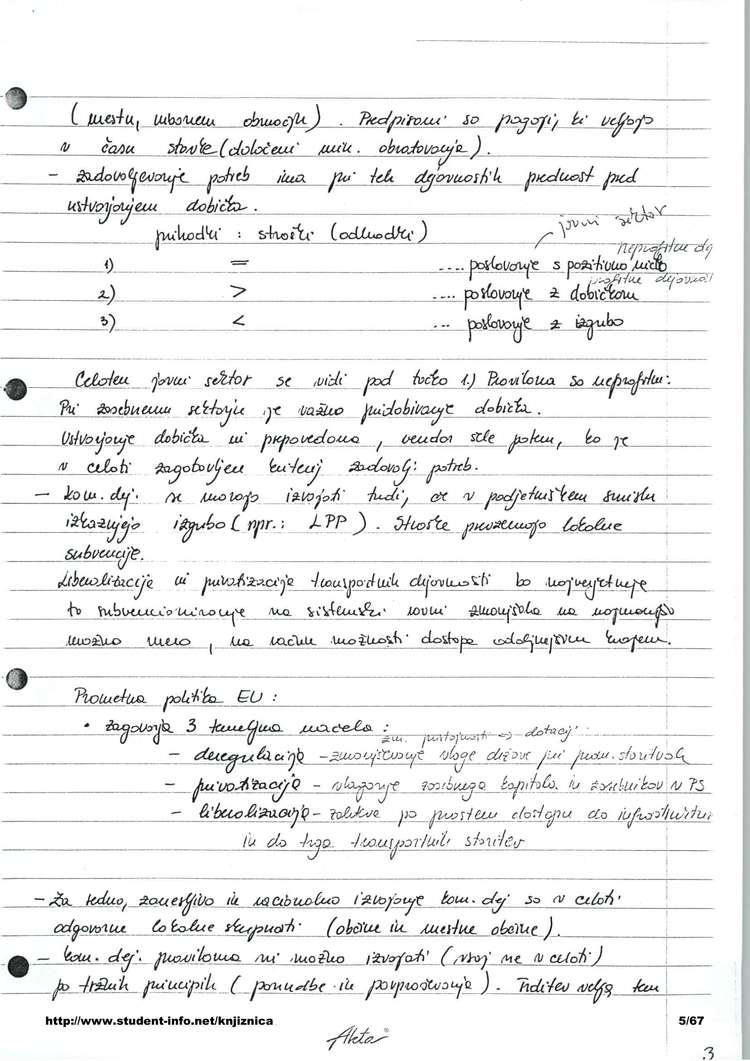 (mestu, urbanem območju). Predpisani so pogoji, ki veljajo
v času stavke (določeni min. obratovanja).
- zadovoljevanje potreb ima pri teh dejavnostih prednost pred
ustvarjanjem dobička.
prihodki : stroški (odhodki)
javni sektor
neprofitne dej
1) = .... poslovanje s pozitivno ničlo
profitne dejavnosti
2) > .... poslovanje z dobičkom
3) < ... poslovanje z izgubo
Celoten javni sektor se vidi pod točko 1.) Praviloma so neprofitni.
Pri zasebnemu sektorju je važno pridobivanje dobička.
Ustvarjanje dobička ni prepovedano, vendar šele potem, ko je
v celoti zagotovljen kriterij zadovolj. potreb.
- kom. dej. se morajo izvajati tudi, če v podjetniškem smislu
izkazujejo izgubo (npr.: LPP). Stroške prevzemajo lokalne
subvencije.
Liberalizacija in privatizacija transportnih dejavnosti bo najverjetneje
to subvencioniranje na sistemski ravni zmanjšala na najmanjšo
možno mero, na račun možnosti dostopa odaljnejšim krajem.
Prometna politika EU :
• zagovarja 3 temeljna načela :
zm. pristojnosti → dotacij
- deregulacija - zmanjševanje vloge države pri prom. storitvah
- privatizacija - vlaganje zasebnega kapitala in zasebnikov v PS
- liberalizacija - zahteva po prostem dostopu do infrastruktur
in do trga transportnih storitev
- Za redno, zanesljivo in racionalno izvajanje kom. dej so v celoti
odgovorne lokalne skupnosti (občine in mestne občine).
- kom. dej. praviloma ni možno izvajati (vsaj ne v celoti)
po tržnih principih (ponudbe in povpraševanja). Trditev velja tem
http://www.student-info.net/knjiznica 5/67
Akta
3